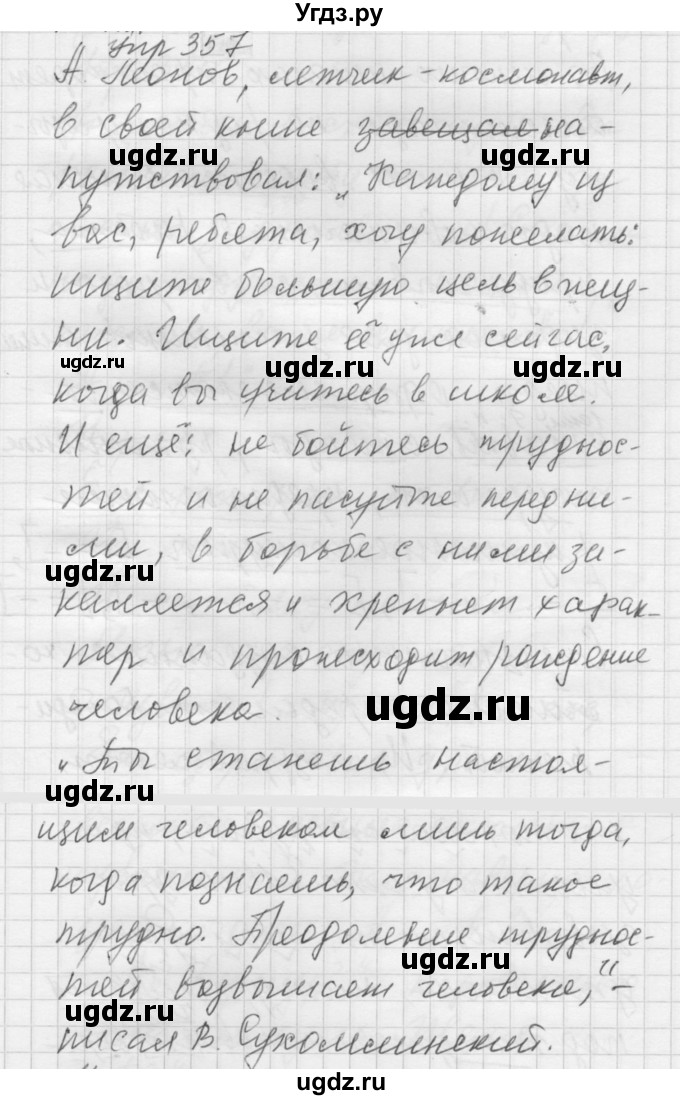 Угдз.ру
Упр 357
А. Леонов, летчик-космонавт,
в своей книге завещал на-
ugdz.ru ugdz.ru
путствовал: „Каждому из
вас, ребята, хочу пожелать:
ищите большую цель в жиз-
ни. Ищите её уже сейчас,
ugdz.ru ugdz.ru
когда вы учитесь в школе.
И ещё: не бойтесь труднос-
тей и не пасуйте перед ни-
ми, в борьбе с ними за-
ugdz.ru ugdz.ru
каляется и крепнет харак-
тер и происходит рождение
человека.
ugdz.ru
„Ты станешь настоя-
ugdz.ru
щим человеком лишь тогда,
когда познаешь, что такое
трудно. Преодоление труднос-
ugdz.ru
тей возвышает человека,“ -
ugdz.ru
писал В. Сухомлинский.
ugdz.ru